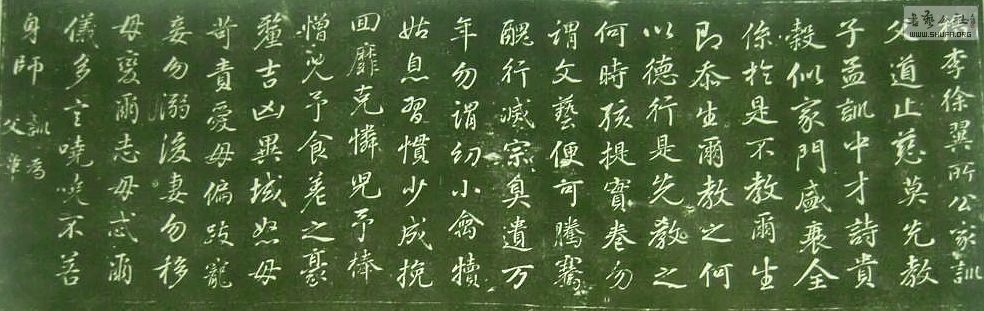 李徐翼所公家訓
父道止慈莫先教
子孟訓中才詩貴
穀似家門盛衰全
係於是不教爾生
即忝生爾教之何
以德行是先教之
何時孩提實巻勿
謂文藝便可騰騫
醜行滅宗臭遺万
年勿謂幼小禽犢
姑息習慣少成挽
回靡克憐兒予棒
憎兒予食差之毫
釐吉凶異域怒毋
苛責愛毋偏跂寵
妾勿溺後妻勿移
毋變爾志毋忒爾
儀多言嘵嘵不若
身師
訓為
父準
书艺公社
WWW.SHUFA.ORG